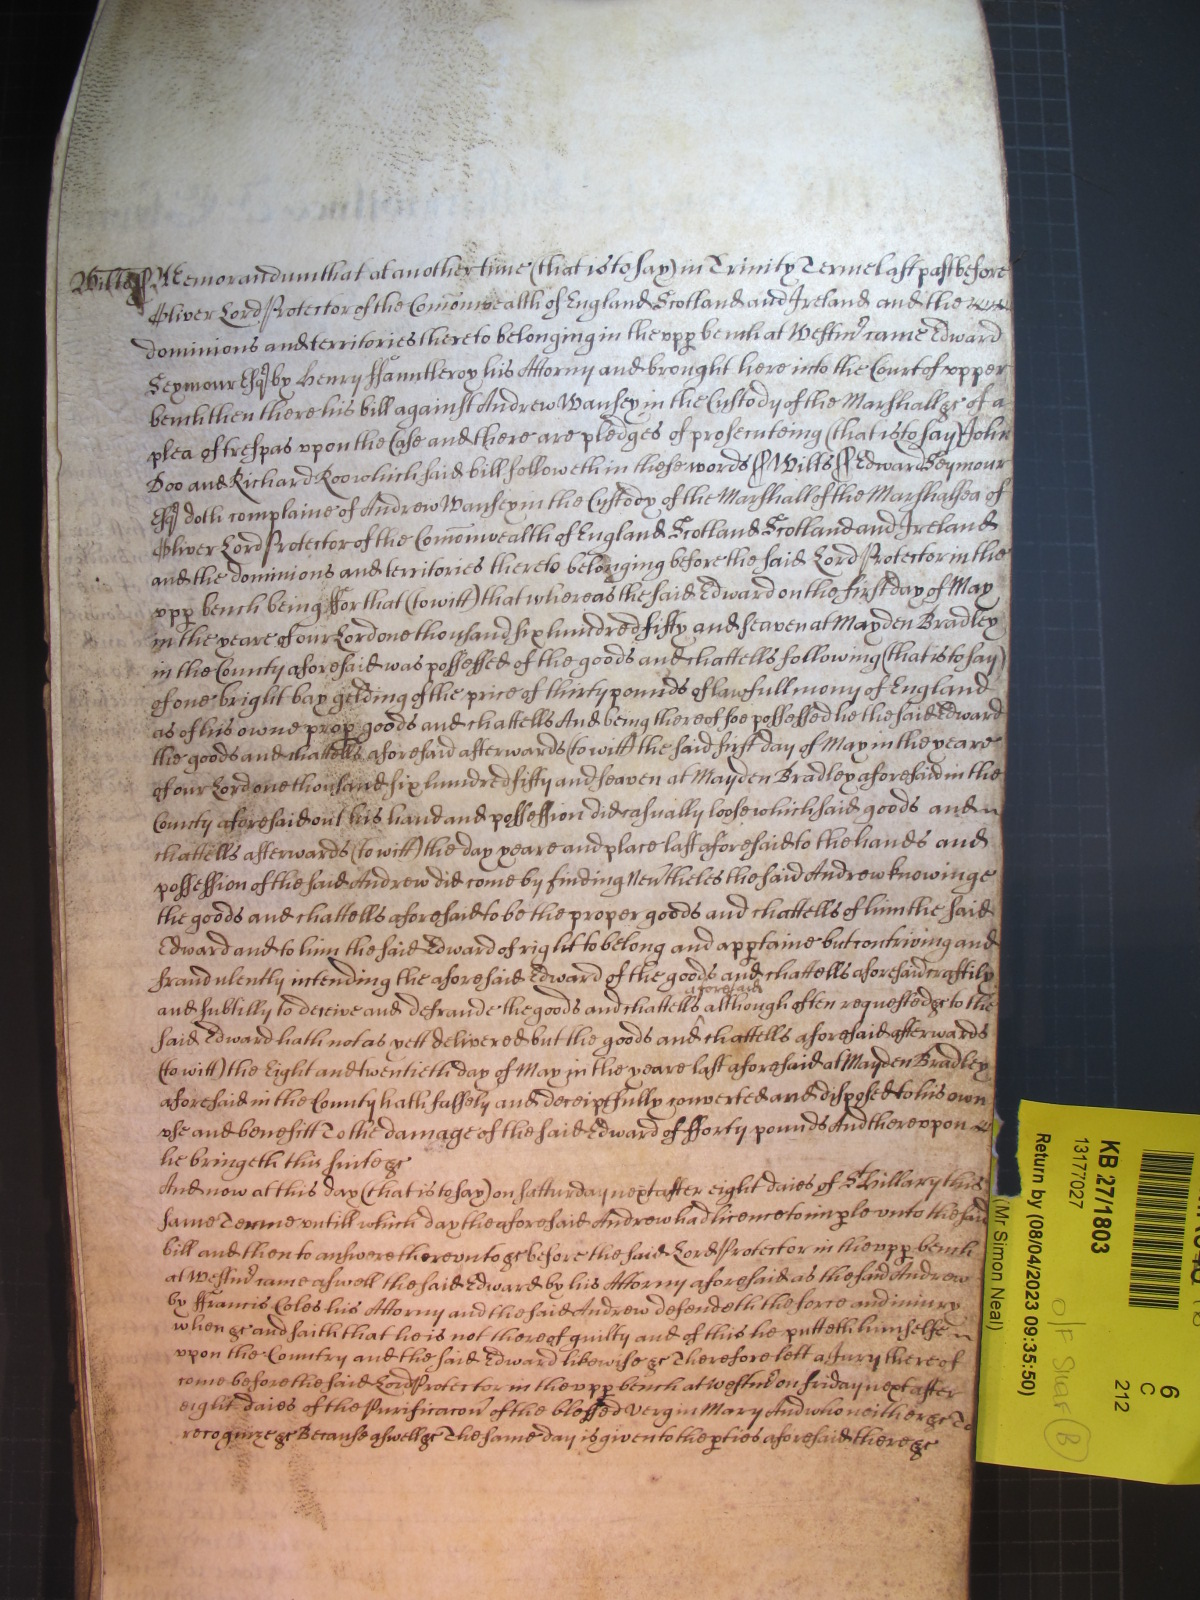 Wilts ss Memorandum that at another time (that is to say) in Trinity Terme last past before
Oliver Lord Protector of the Com̄onwealth of England Scotland and Ireland and the
dominions and territories thereto belonging in the upp bench at Westmr came Edward
Seymour Esqr by Henry ffauntleroy his Attorny and brought here into the Court of upper
bench then there his bill against Andrew Wansey in the Custody of the Marshall &c of a
plea of trespas upon the Case and there are pledges of prosecuteing (that is to say) John
Doo and Richard Roo which said bill followeth in these words ss Wilts ss Edward Seymour
Esqr doth complaine of Andrew Wansey in the Custody of the Marshall of the Marshalsea of
Oliver Lord Protector of the Com̄onwealth of England Scotland Scotland and Ireland
and the dominions and territories thereto belonging before the said Lord Protector in the
upp bench being ffor that (to witt) that whereas the said Edward on the first day of May
in the yeare of our Lord one thousand six hundred fifty and seaven at Mayden Bradley
in the County aforesaid was possessed of the goods and chattells following (that is to say)
of one bright bay gelding of the price of thirty pounds of lawfull mony of England
as of his owne prop goods and chattells And being thereof soe possessed he the said Edward
the goods and chattells aforesaid afterwards (to witt) the said first day of May in the yeare
of our Lord one thousand six hundred fifty and seaven at Mayden Bradley aforesaid in the
County aforesaid out his hand and possession did casually loose which said goods and
chattells afterwards (to witt) the day yeare and place last aforesaid to the hands and
possession of the said Andrew did come by finding Nevtheles the said Andrew knowinge
the goods and chattells aforesaid to be the proper goods and chattells of him the said
Edward and to him the said Edward of right to belong and apptaine but contriving and
fraudulently intending the aforesaid Edward of the goods and chattells aforesaid craftily
and subtilly to deceive and defraude the goods and chattells aforesaid although often requested &c to the
said Edward hath not as yett delivered but the goods and chattells aforesaid afterwards
(to witt) the Eight and twentieth day of May in the yeare last aforesaid at Mayden Bradley
aforesaid in the County hath falsely and deceiptfully converted and disposed to his own
use and benefitt To the damage of the said Edward of fforty pounds And thereupon
he bringeth this suite &c
And now at this day (that is to say) on Satturday next after eight daies of St Hillary this
same Terme untill which day the aforesaid Andrew had licence to imple unto the said
bill and then to answere thereunto &c before the said Lord Protector in the upp bench
at Westmr came aswell the said Edward by his Attorny aforesaid as the said Andrew
by ffrancis Coles his Attorny and the said Andrew defendeth the force and iniury
when &c and saith that he is not thereof guilty and of this he putteth himselfe
upon the Country and the said Edward likewise &c Therefore lett a Jury thereof
come before the said Lord Protector in the upp bench at Westmr on friday next after
eight daies of the Purificacon of the blessed Vergin Mary And who neither &c To
recognize &c Because aswell &c The same day is given to the pties aforesaid there &c
KB 27/1803
13177027
Return by (08/04/2023 09:35:50)
(Mr Simon Neal)
6
C
212
O/F Staf (B)